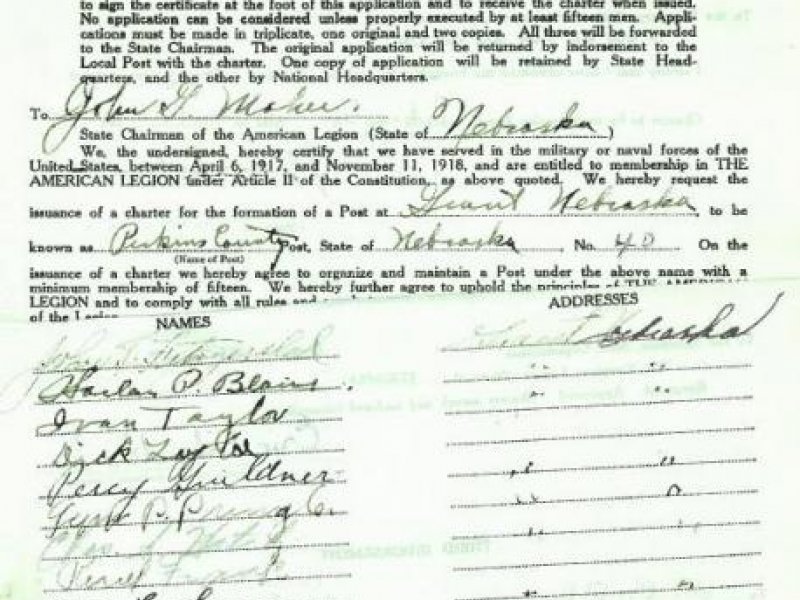 to sign the certificate at the foot of this application and to receive the charter when issued.
No application can be considered unless properly executed by at least fifteen men. Appli-
cations must be made in triplicate, one original and two copies. All three will be forwarded
to the State Chairman. The original application will be returned by indorsement to the
Local Post with the charter. One copy of application will be retained by State Head-
quarters, and the other by National Headquarters.
To John G. Maher.
State Chairman of the American Legion (State of Nebraska)
We, the undersigned, hereby certify that we have served in the military or naval forces of the
United States, between April 6, 1917, and November 11, 1918, and are entitled to membership in THE
AMERICAN LEGION under Article II of the Constitution, as above quoted. We hereby request the
issuance of a charter for the formation of a Post at Grant Nebraska, to be
known as Perkins County Post, State of Nebraska, No. 40 On the
(Name of Post)
issuance of a charter we hereby agree to organize and maintain a Post under the above name with a
minimum membership of fifteen. We hereby further agree to uphold the principles of THE AMERICAN
LEGION and to comply with all rules and
of the Legion
NAMES ADDRESSES
John Nebraska
Harlan P. Blaine " "
Ivan Taylor " "
Dick
Percy Guildner " "
" "
" "